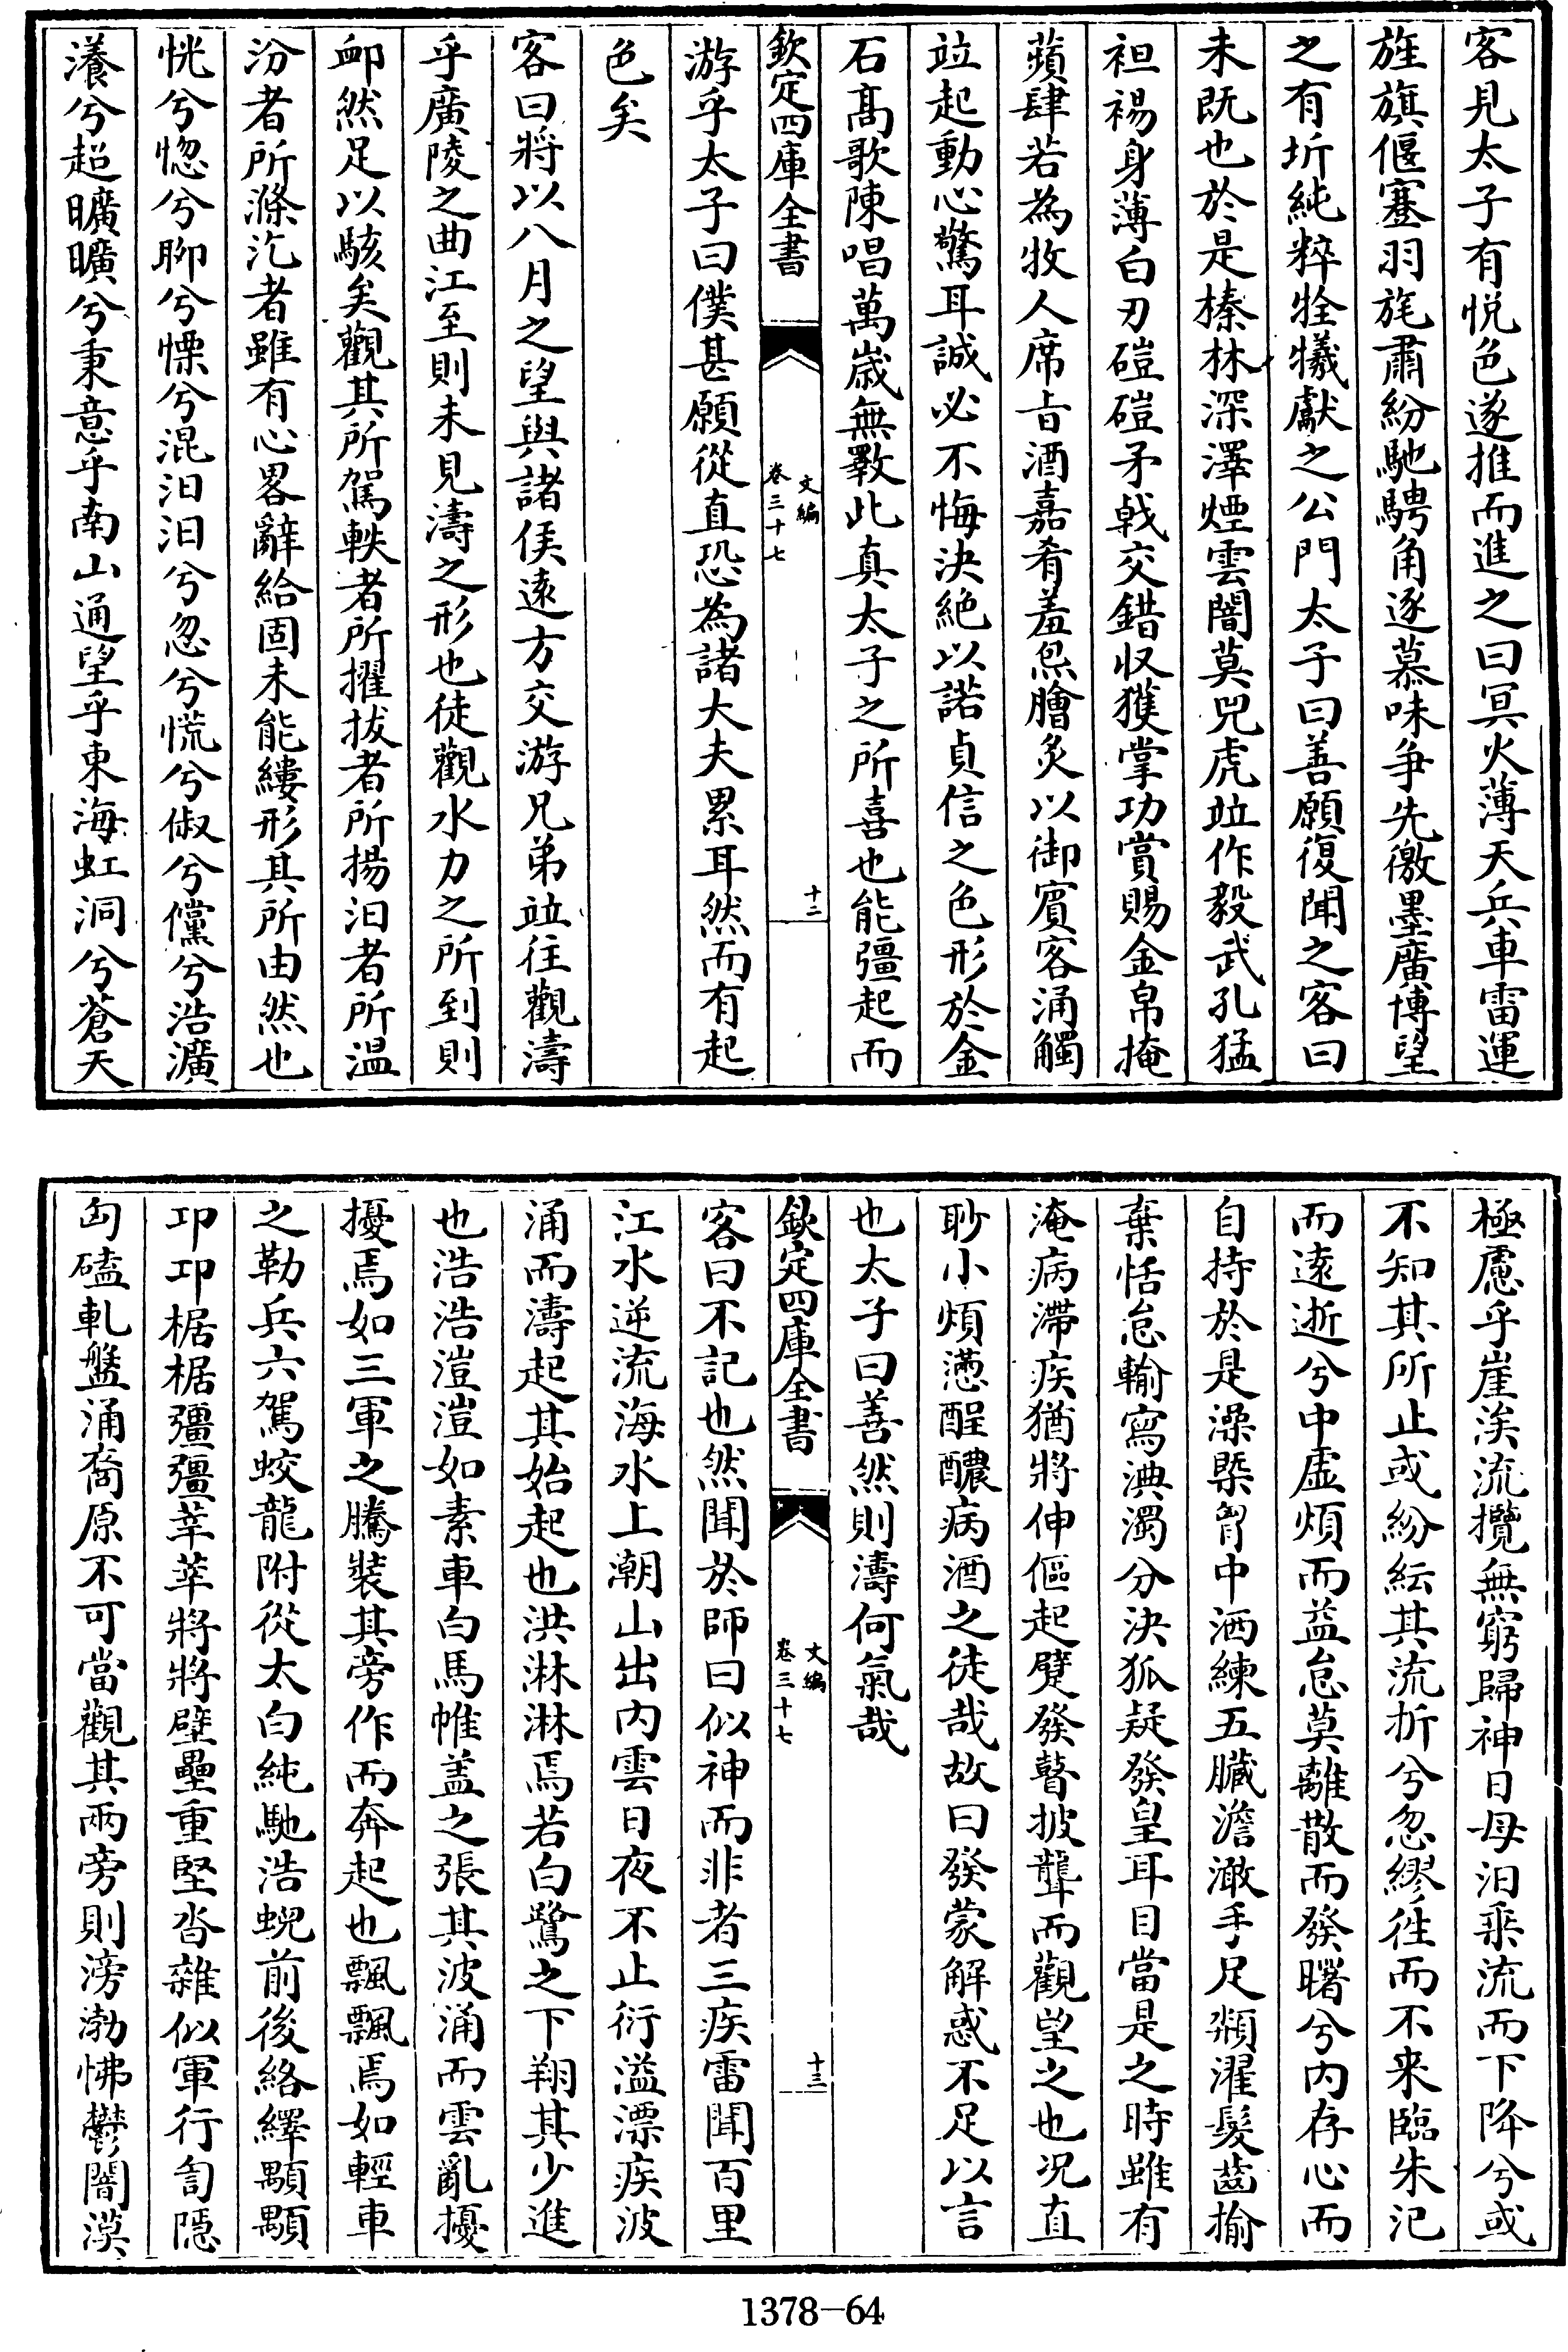 客見太子有悅色遂推而進之曰冥火薄天兵車雷運
旌旗偃蹇羽旄肅紛馳騁角逐慕味爭先徼墨廣博望
之有圻純粹牷犧獻之公門太子曰善願復聞之客曰
未既也於是榛林深澤煙雲闇莫兕虎竝作毅武孔猛
袒裼身薄白刃磑磑矛㦸交錯収獲掌功賞賜金帛掩
蘋肆若為牧人席㫖酒嘉肴羞炰膾炙以御賓客涌觸
竝起動心驚耳誠必不悔決絕以諾貞信之色形於金
石髙歌陳唱萬歳無斁此真太子之所喜也能彊起而
欽定四庫全書
文編
卷三十七
十二
游乎太子曰僕甚願從直恐為諸大夫累耳然而有起
色矣
客曰將以八月之望與諸侯遠方交游兄弟竝往觀濤
乎廣陵之曲江至則未見濤之形也徒觀水力之所到則
䘏然足以駭矣觀其所駕軼者所擢拔者所揚汩者所温
汾者所滌汔者雖有心畧辭給固未能縷形其所由然也
怳兮惚兮聊兮慄兮混汩汩兮忽兮慌兮俶兮儻兮浩瀇
瀁兮超曠曠兮秉意乎南山通望乎東海虹洞兮蒼天
極慮乎崖涘流攬無窮歸神日母汩乘流而下降兮或
不知其所止或紛紜其流折兮忽繆徃而不来臨朱汜
而遠逝兮中虛煩而益怠莫離散而發曙兮内存心而
自持於是澡槩胷中洒練五臟澹澉手足頮濯髮齒揄
棄恬怠輸寫淟濁分決狐疑發皇耳目當是之時雖有
淹病滯疾猶將伸傴起躄發瞽披聾而觀望之也况直
眇小煩懣酲醲病酒之徒哉故曰發蒙解惑不足以言
也太子曰善然則濤何氣哉
欽定四庫全書
文編
卷三十七
十三
客曰不記也然聞於師曰似神而非者三疾雷聞百里
江水逆流海水上潮山出内雲日夜不止衍溢漂疾波
涌而濤起其始起也洪淋淋焉若白鷺之下翔其少進
也浩浩溰溰如素車白馬帷盖之張其波涌而雲亂擾
擾焉如三軍之騰裝其旁作而奔起也飄飄焉如輕車
之勒兵六駕蛟龍附從太白純馳浩蜺前後絡繹顒顒
卭卭椐椐彊彊莘莘將將壁壘重堅沓雜似軍行訇隱
匈磕軋盤涌裔原不可當觀其兩旁則滂渤怫鬱闇漠
1378-64